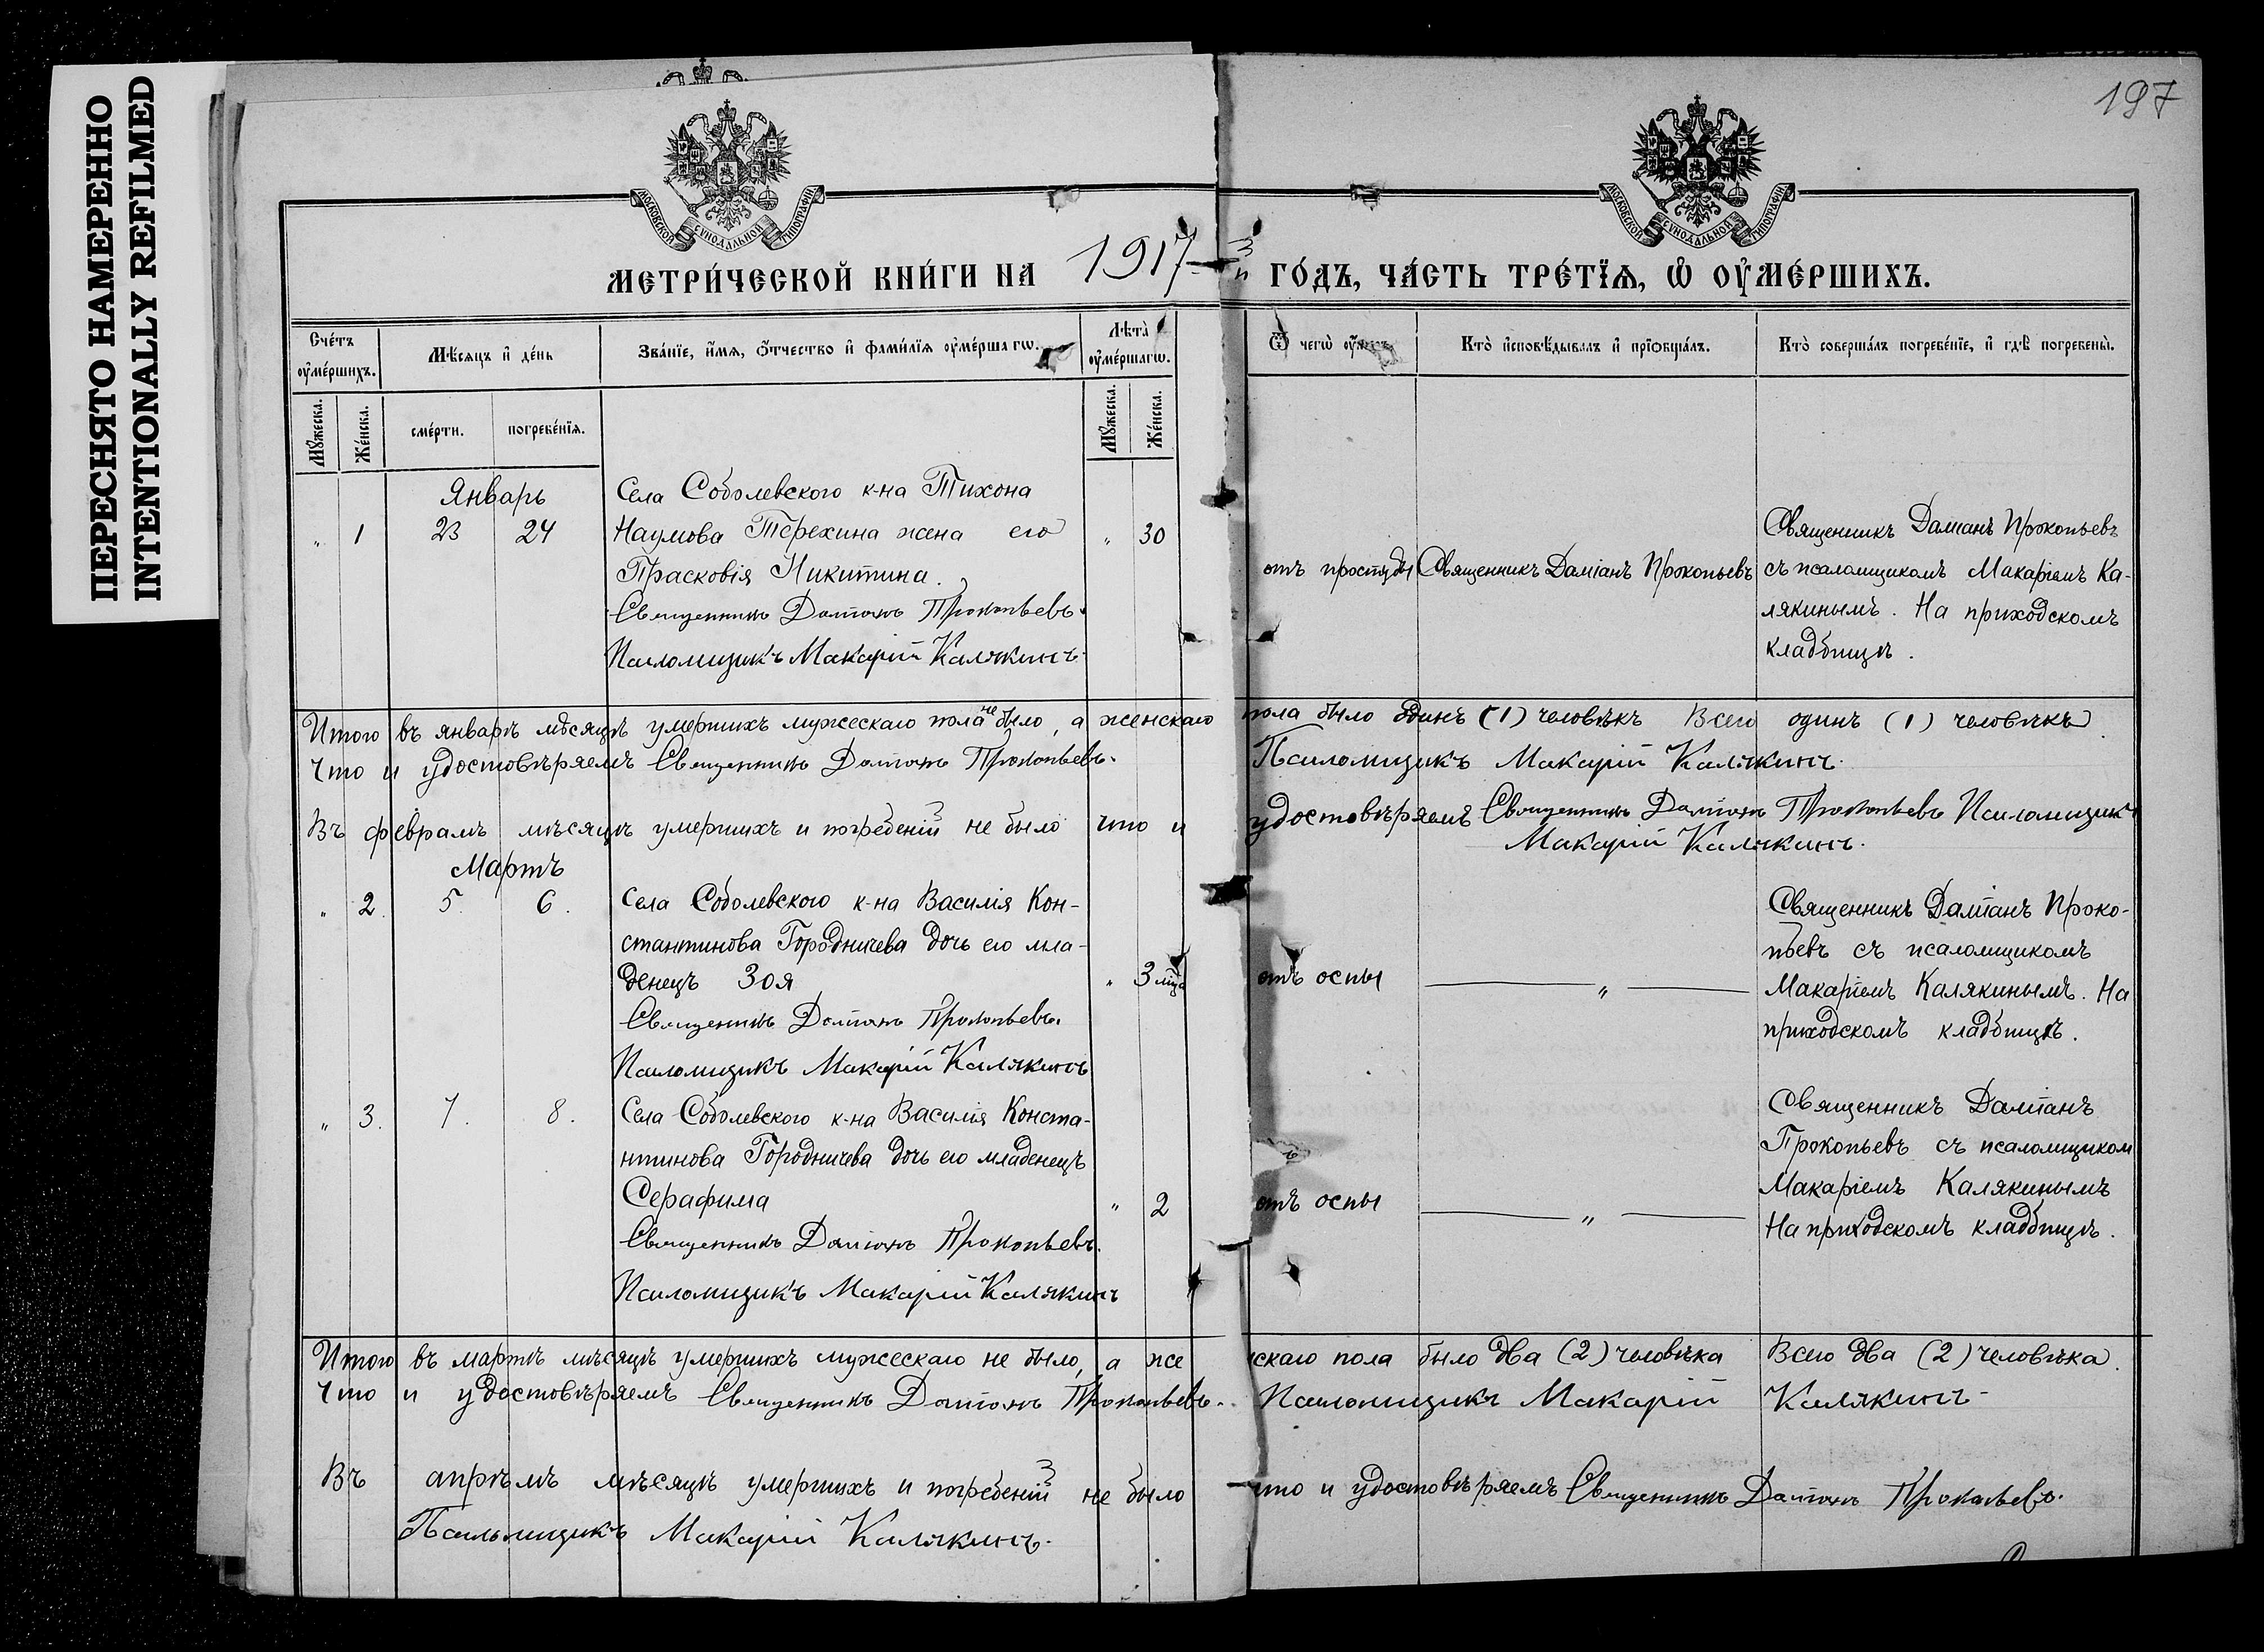 ПЕРЕСНЯТО НАМЕРЕННО
INTENTIONALLY REFILMED
197
МОСКОВСКОЙ СѴНОДАЛЬНОЙ ТИПОГРАФІИ
МОСКОВСКОЙ СѴНОДАЛЬНОЙ ТИПОГРАФІИ
МЕТРИ́ЧЕСКОЙ КНИ́ГИ НА 1917 ГО́ДЪ, ЧА́СТЬ ТРЕ́ТЇѦ, Ѽ ОУ҆МЕ́РШИХЪ.
Сче́тъ оу҆ме́ршихъ.
Мѣ́сѧцъ и҆ де́нь
Зва́нїе, и҆́мѧ, ѻ҆́тчество и҆ фами́лїѧ оу҆ме́ршагѡ.
Лѣ́та оу҆ме́ршагѡ.
Ѿ чегѡ̀
Кто̀ и҆сповѣ́дывалъ и҆ прїѡбща́лъ.
Кто̀ соверша́лъ погребе́нїе, и҆ гдѣ̀ погребены̀.
Мꙋ́жеска.
Же́нска.
сме́рти.
погребе́нїѧ.
Мꙋ́жеска.
Же́нска.
Январь
" 1 23 24
Села Соболевского к-на Тихона
Наумова Терехина жена его
Прасковія Никитина.
Священникъ Даміанъ Прокопьевъ.
Псаломщикъ Макарій Калякинъ
" 30
отъ простуды
Священникъ Даміанъ Прокопьевъ
Священникъ Даміанъ Прокопьевъ
съ псаломщикомъ Макаріемъ Ка-
лякинымъ. На приходскомъ
кладбищѣ.
Итого въ январѣ мѣсяцѣ умершихъ мужескаго пола не было, а женскаго пола было одинъ (1) человѣкъ Всего одинъ (1) человѣкъ
Что и удостовѣряемъ Священникъ Даміанъ Прокопьевъ. Псаломщикъ Макарій Калякинъ.
Въ февралѣ мѣсяцѣ умершихъ и погребеній не было что и удостовѣряемъ Священникъ Даміанъ Прокопьевъ Псаломщикъ
Макарій Калякинъ.
Мартъ
" 2. 5. 6.
Села Соболевского к-на Василія Кон-
стантинова Городничева дочь его мла-
денецъ Зоя
Священникъ Даміанъ Прокопьевъ.
Псаломщикъ Макарій Калякинъ
" 3 мца
отъ оспы
"
Священникъ Даміанъ Проко-
пьевъ съ псаломщикомъ
Макаріемъ Калякинымъ. На
приходскомъ кладбищѣ.
" 3. 7. 8.
Села Соболевского к-на Василія Конста-
нтинова Городничева дочь его младенецъ
Серафима
Священникъ Даміанъ Прокопьевъ.
Псаломщикъ Макарій Калякинъ
" 2
отъ оспы
"
Священникъ Даміанъ
Прокопьевъ съ псаломщиком
Макаріемъ Калякинымъ
На приходскомъ кладбищѣ.
Итого въ мартѣ мѣсяцѣ умершихъ мужескаго не было, а же нскаго пола было два (2) человѣка Всего два (2) человѣка.
Что и удостовѣряемъ Священникъ Даміанъ Прокопьевъ. Псаломщикъ Макарій Калякинъ
Въ апрѣлѣ мѣсяцѣ умершихъ и погребеній не было что и удостовѣряемъ Священникъ Даміанъ Прокопьевъ.
Псаломщикъ Макарій Калякинъ.